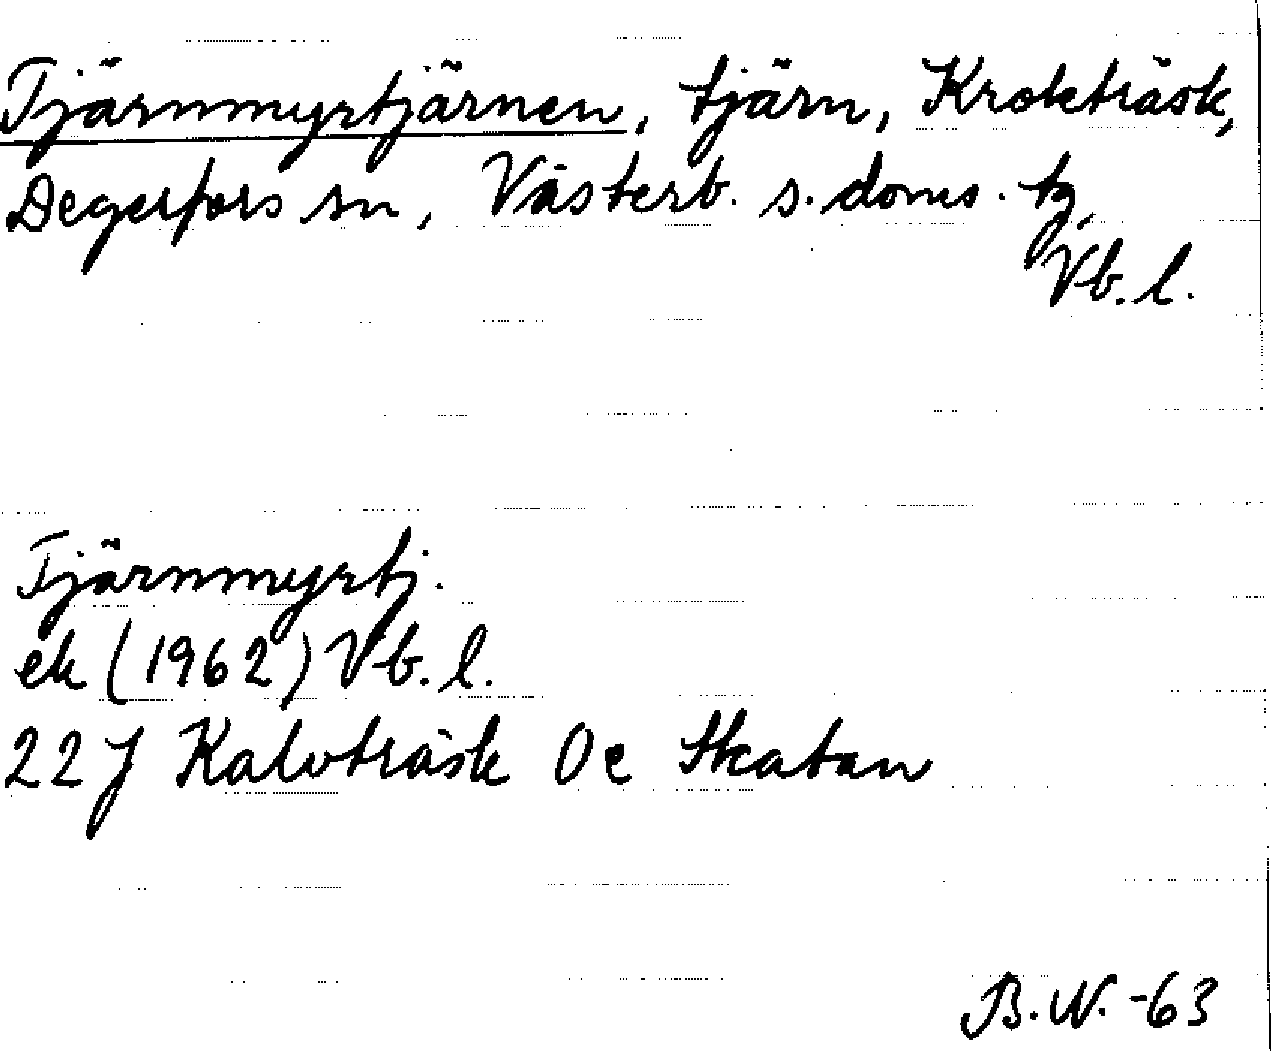 Tjärnmyrtjärnen, tjärn, Krokträsk,
Degerfors sn, Västerb. s. doms. tg,
Vb. l.
Tjärnmyrtj.
ek (1962) Vb. l.
22 J Kalvträsk 0 e Skatan
B.W. -63